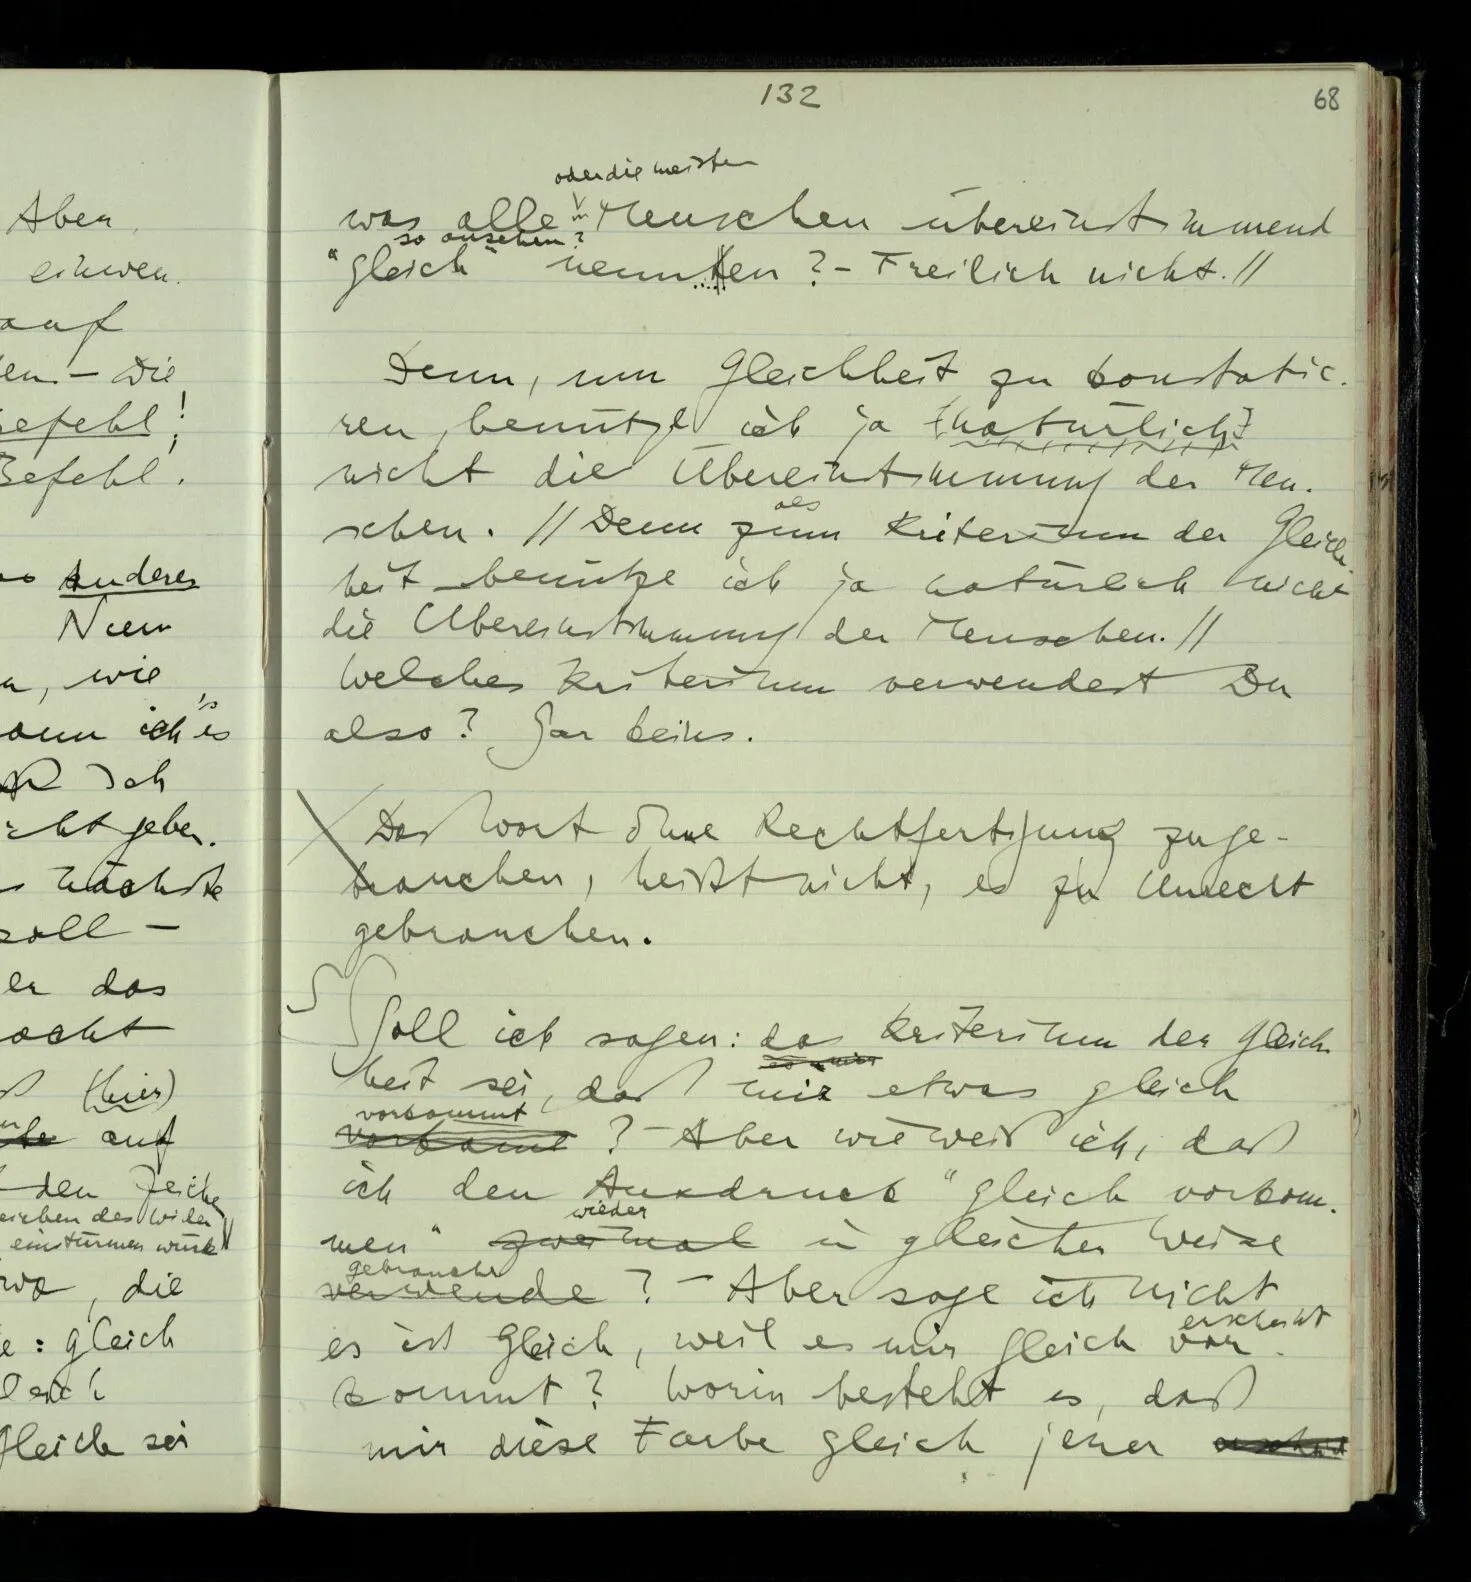 Aber
einwen.
auf
en. – Wie
Befehl!
Befehl.
Anderes
Nun
, wie
kann ich es
Ich
icht geben.
nächste
soll –
er das
macht
(hier)
auf
den Zeiche
eichen des Wider
einstürmen würde
, die
: gleich
gleich sei
132
68
oder die meisten
was alle Menschen übereinstimmend
so ansehen?
"gleich" nennten? – Freilich nicht. //
Denn, um Gleichheit zu konstatie-
ren, benütze ich ja [natürlich]
nicht die Übereinstimmung der Men-
als
schen. // Denn zum Kriterium der Gleich-
heit benütze ich ja natürlich nicht
die Übereinstimmung der Menschen. //
Welches Kriterium verwendest Du
also? Gar keins.
\ Das Wort ohne Rechtfertigung zu ge-
brauchen, heißt nicht, es zu Unrecht
gebrauchen.
S Soll ich sagen: das Kriterium der Gleich-
heit sei, daß mir etwas gleich
vorkommt
vorkomme? – Aber wie weiß ich, daß
ich den Ausdruck "gleich vorkom-
wieder
men" zweimal in gleicher Weise
gebrauche
verwende? – Aber sage ich nicht
erscheint
es ist gleich, weil es mir gleich vor-
kommt? Worin besteht es, daß
mir diese Farbe gleich jener erscheint